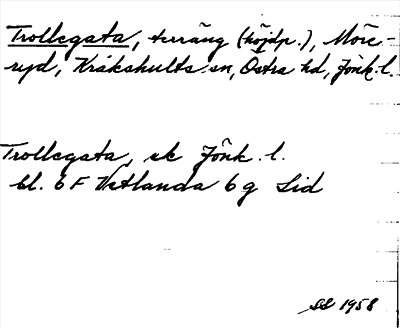 Trollegata, terräng (höjdp.), Möre-
ryd, Kråkshults sn, Östra hd, Jönk. l.
Trollegata, ek Jönk. l.
bl. 6 F Vetlanda 6 g Sid
SS 1958